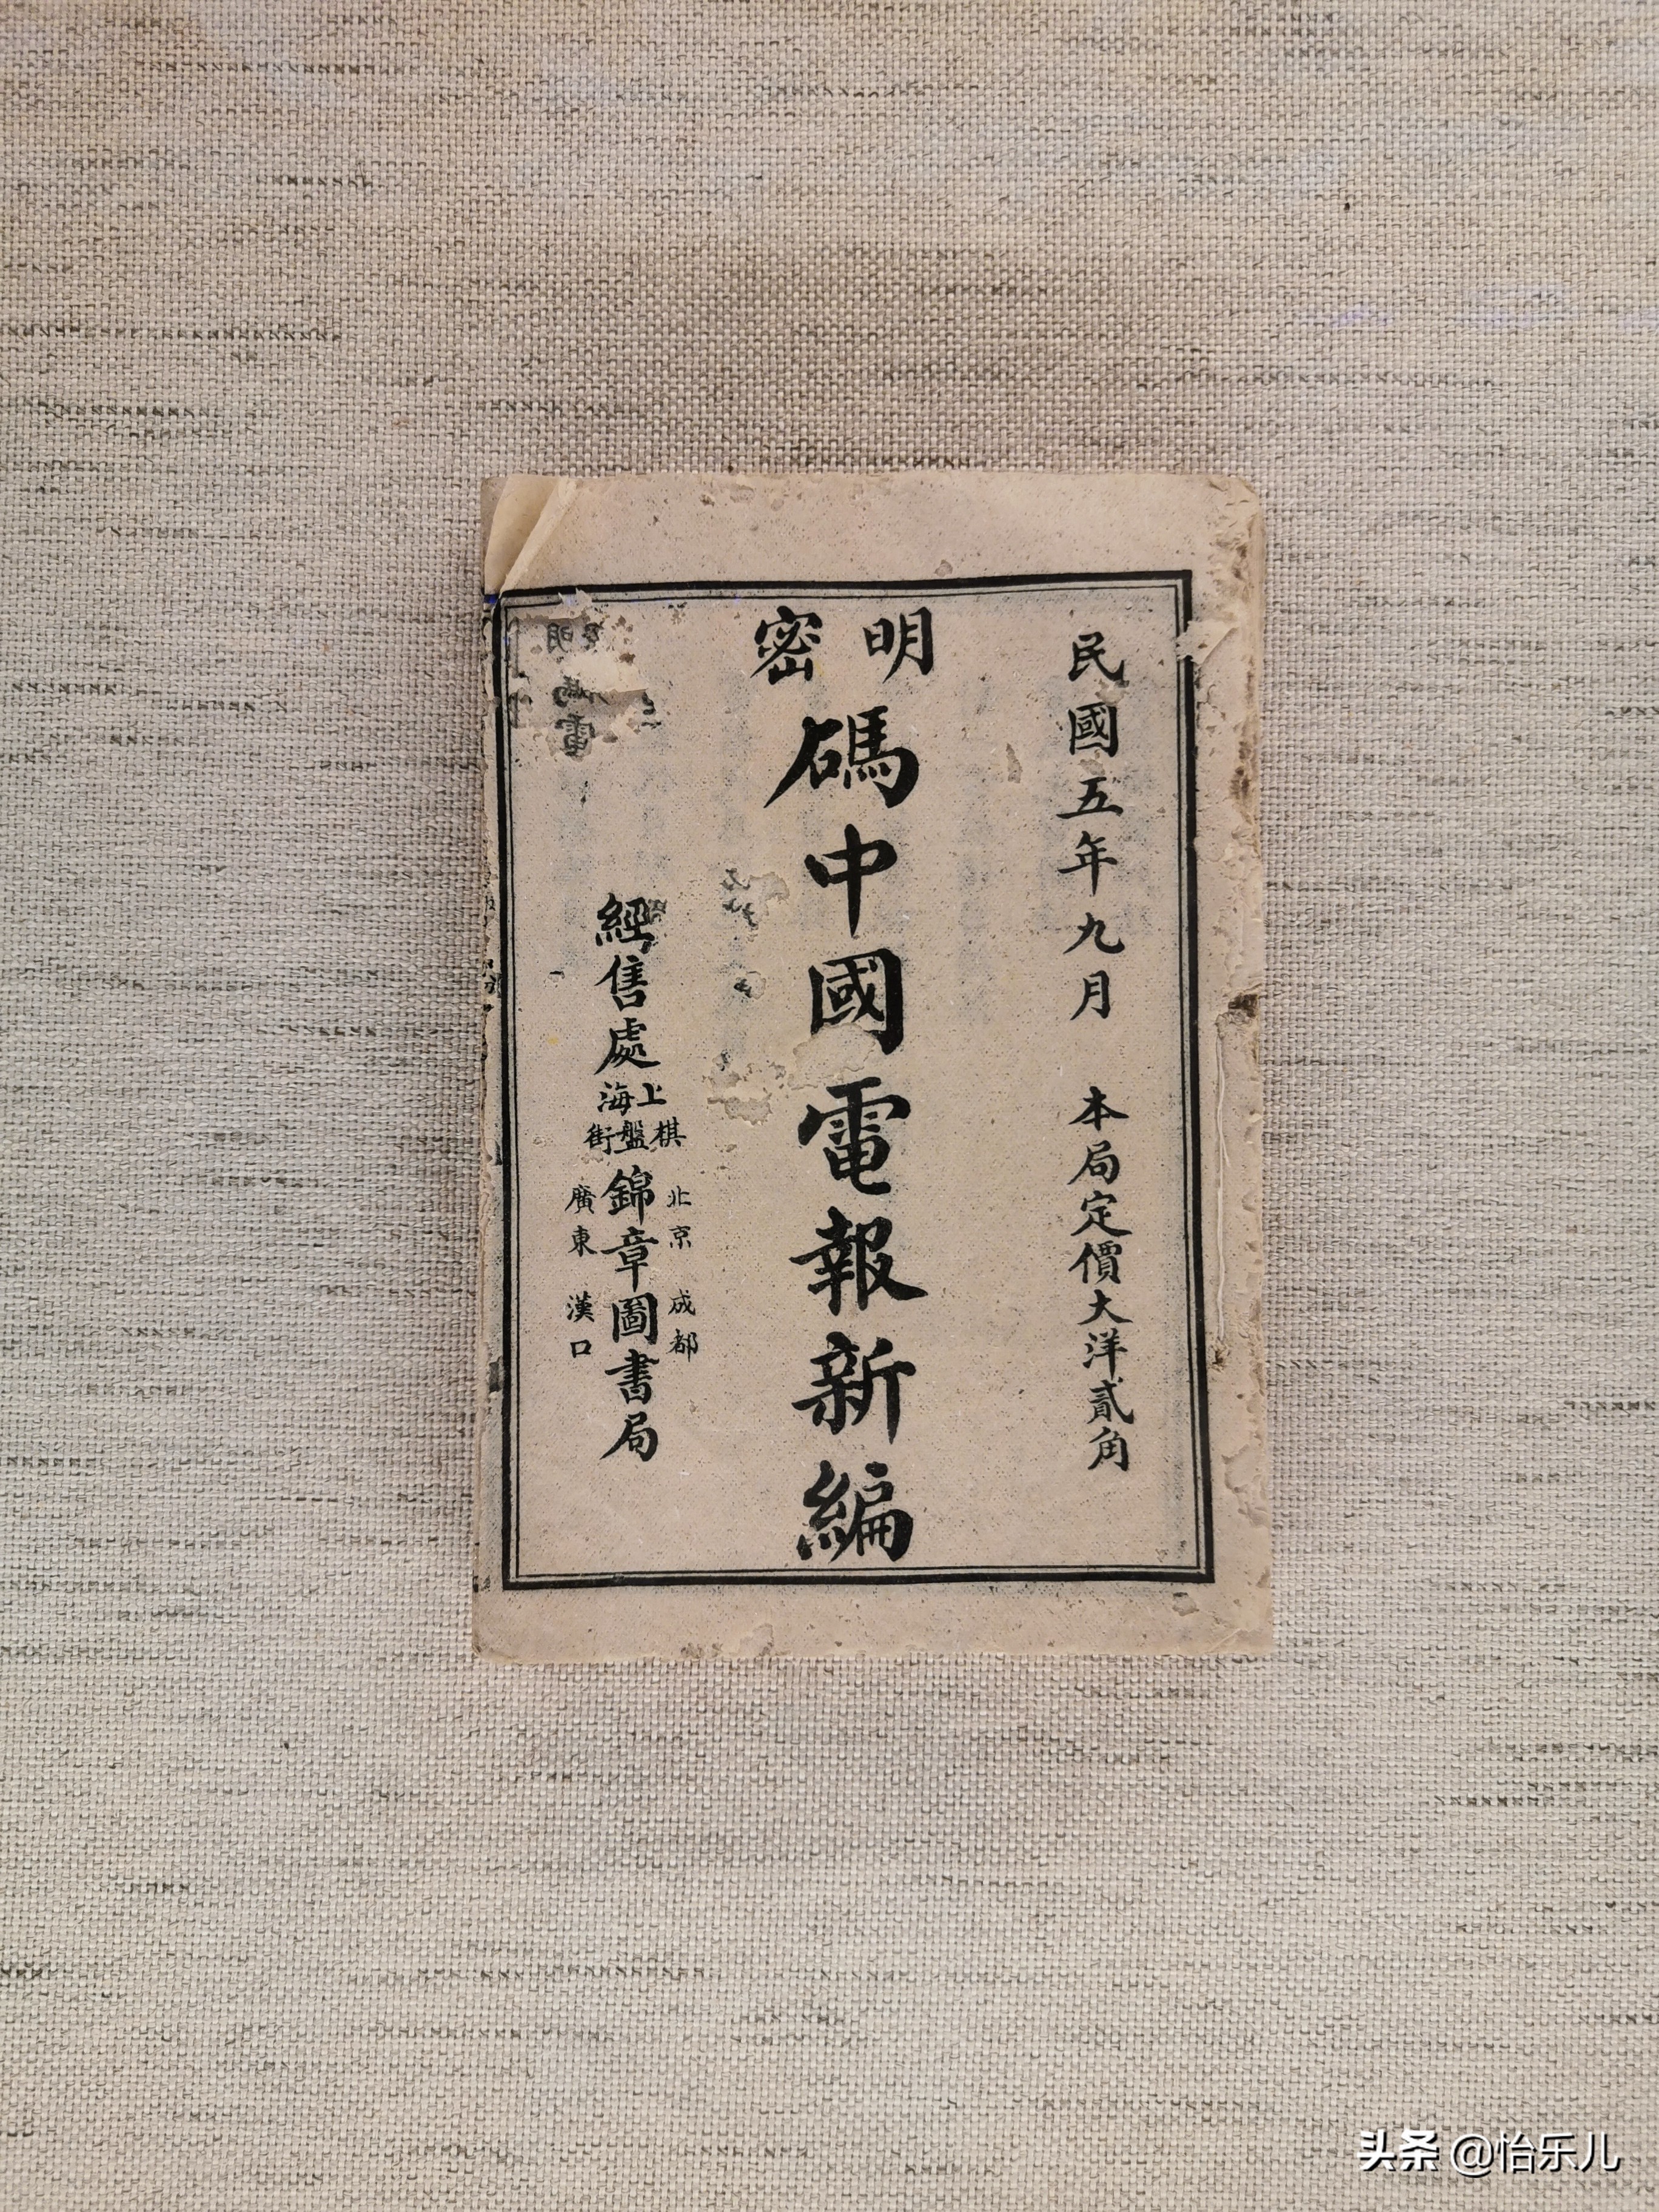 民國五年九月 本局定價大洋貳角
明密
碼中國電報新編
經售處
上海
棋盤街
北京 成都
錦章圖書局
廣東 漢口
头条 @怡乐儿